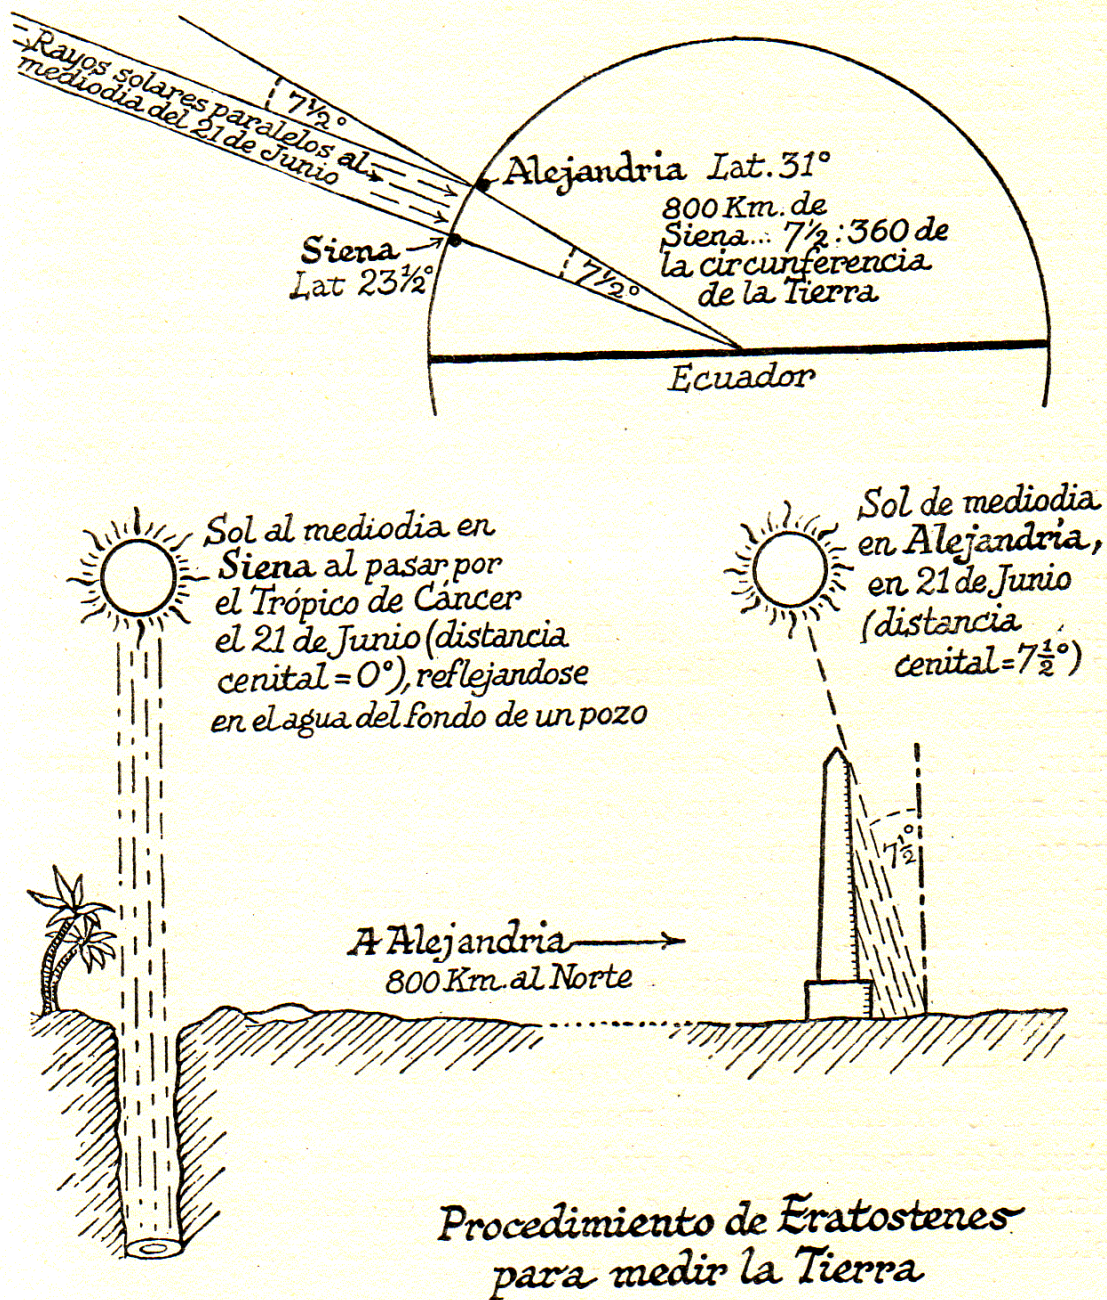 Rayos solares paralelos al
mediodia del 21 de Junio
7½°
Alejandria Lat. 31°
800 Km. de
Siena... 7½:360 de
la circunferencia
de la Tierra
Siena
Lat 23½°
7½°
Ecuador
Sol al mediodia en
Siena al pasar por
el Trópico de Cáncer
el 21 de Junio (distancia
cenital = 0°), reflejandose
en el agua del fondo de un pozo
Sol de mediodia
en Alejandría,
en 21 de Junio
(distancia
cenital = 7½°)
7½°
A Alejandria
800 Km. al Norte
Procedimiento de Eratostenes
para medir la Tierra